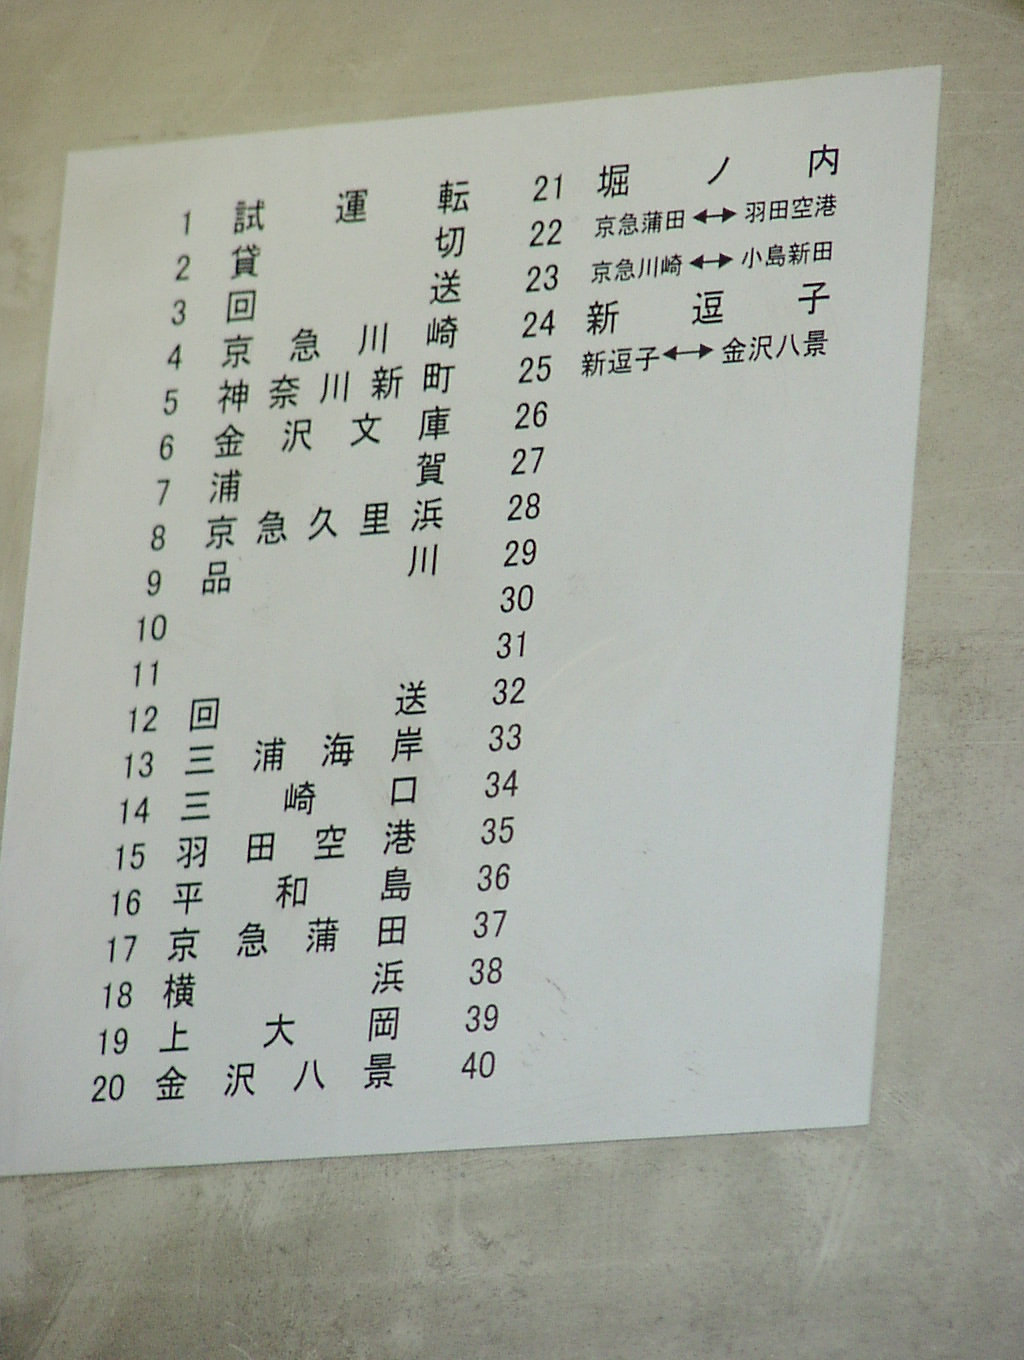 1 試運転
2 貸切
3 回送
4 京急川崎
5 神奈川新町
6 金沢文庫
7 浦賀
8 京急久里浜
9 品川
10
11
12 回送
13 三浦海岸
14 三崎口
15 羽田空港
16 平和島
17 京急蒲田
18 横浜
19 上大岡
20 金沢八景
21 堀ノ内
22 京急蒲田↔羽田空港
23 京急川崎↔小島新田
24 新逗子
25 新逗子↔金沢八景
26
27
28
29
30
31
32
33
34
35
36
37
38
39
40